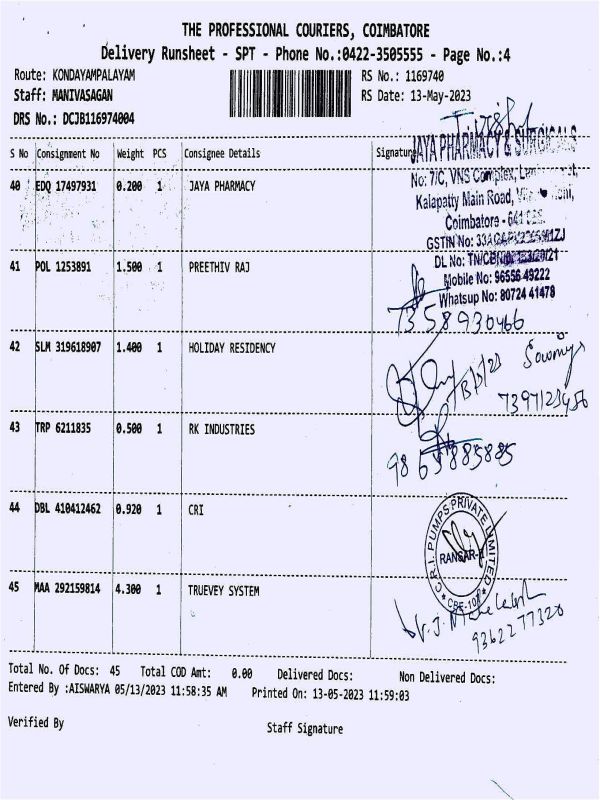 THE PROFESSIONAL COURIERS, COIMBATORE
Delivery Runsheet - SPT - Phone No.:0422-3505555 - Page No.:4
Route: KONDAYAMPALAYAM RS No.: 1169740
Staff: MANIVASAGAN RS Date: 13-May-2023
DRS No.: DCJB116974004
S No Consignment No Weight PCS Consignee Details Signature
JAYA PHARMACY & SURGICALS
40 EDQ 17497931 0.200 1 JAYA PHARMACY
No: 7/C, VNS Complex,
Kalapatty Main Road,
Coimbatore -
GSTIN No:
DL No:
Mobile No: 96556 49222
Whatsup No: 80724 41478
41 POL 1253891 1.500 1 PREETHIV RAJ
7358930466
42 SLM 319618907 1.400 1 HOLIDAY RESIDENCY
Sowmiya
7397123456
43 TRP 6211835 0.500 1 RK INDUSTRIES
9865885885
44 DBL 410412462 0.920 1 CRI
C.R.I. PUMPS PRIVATE LIMITED
45 MAA 292159814 4.300 1 TRUEVEY SYSTEM
9362277320
Total No. Of Docs: 45 Total COD Amt: 0.00 Delivered Docs: Non Delivered Docs:
Entered By :AISWARYA 05/13/2023 11:58:35 AM Printed On: 13-05-2023 11:59:03
Verified By Staff Signature